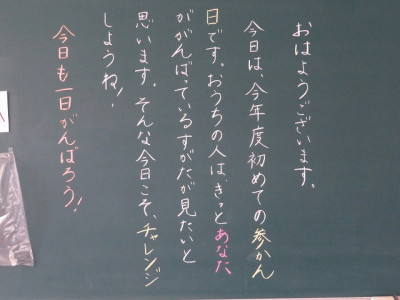 おはようございます。
今日は、今年度初めての参かん
日です。おうちの人は、きっとあなた
ががんばっているすがたが見たいと
思います。そんな今日こそ、チャレンジ
しようね！
今日も一日がんばろう！